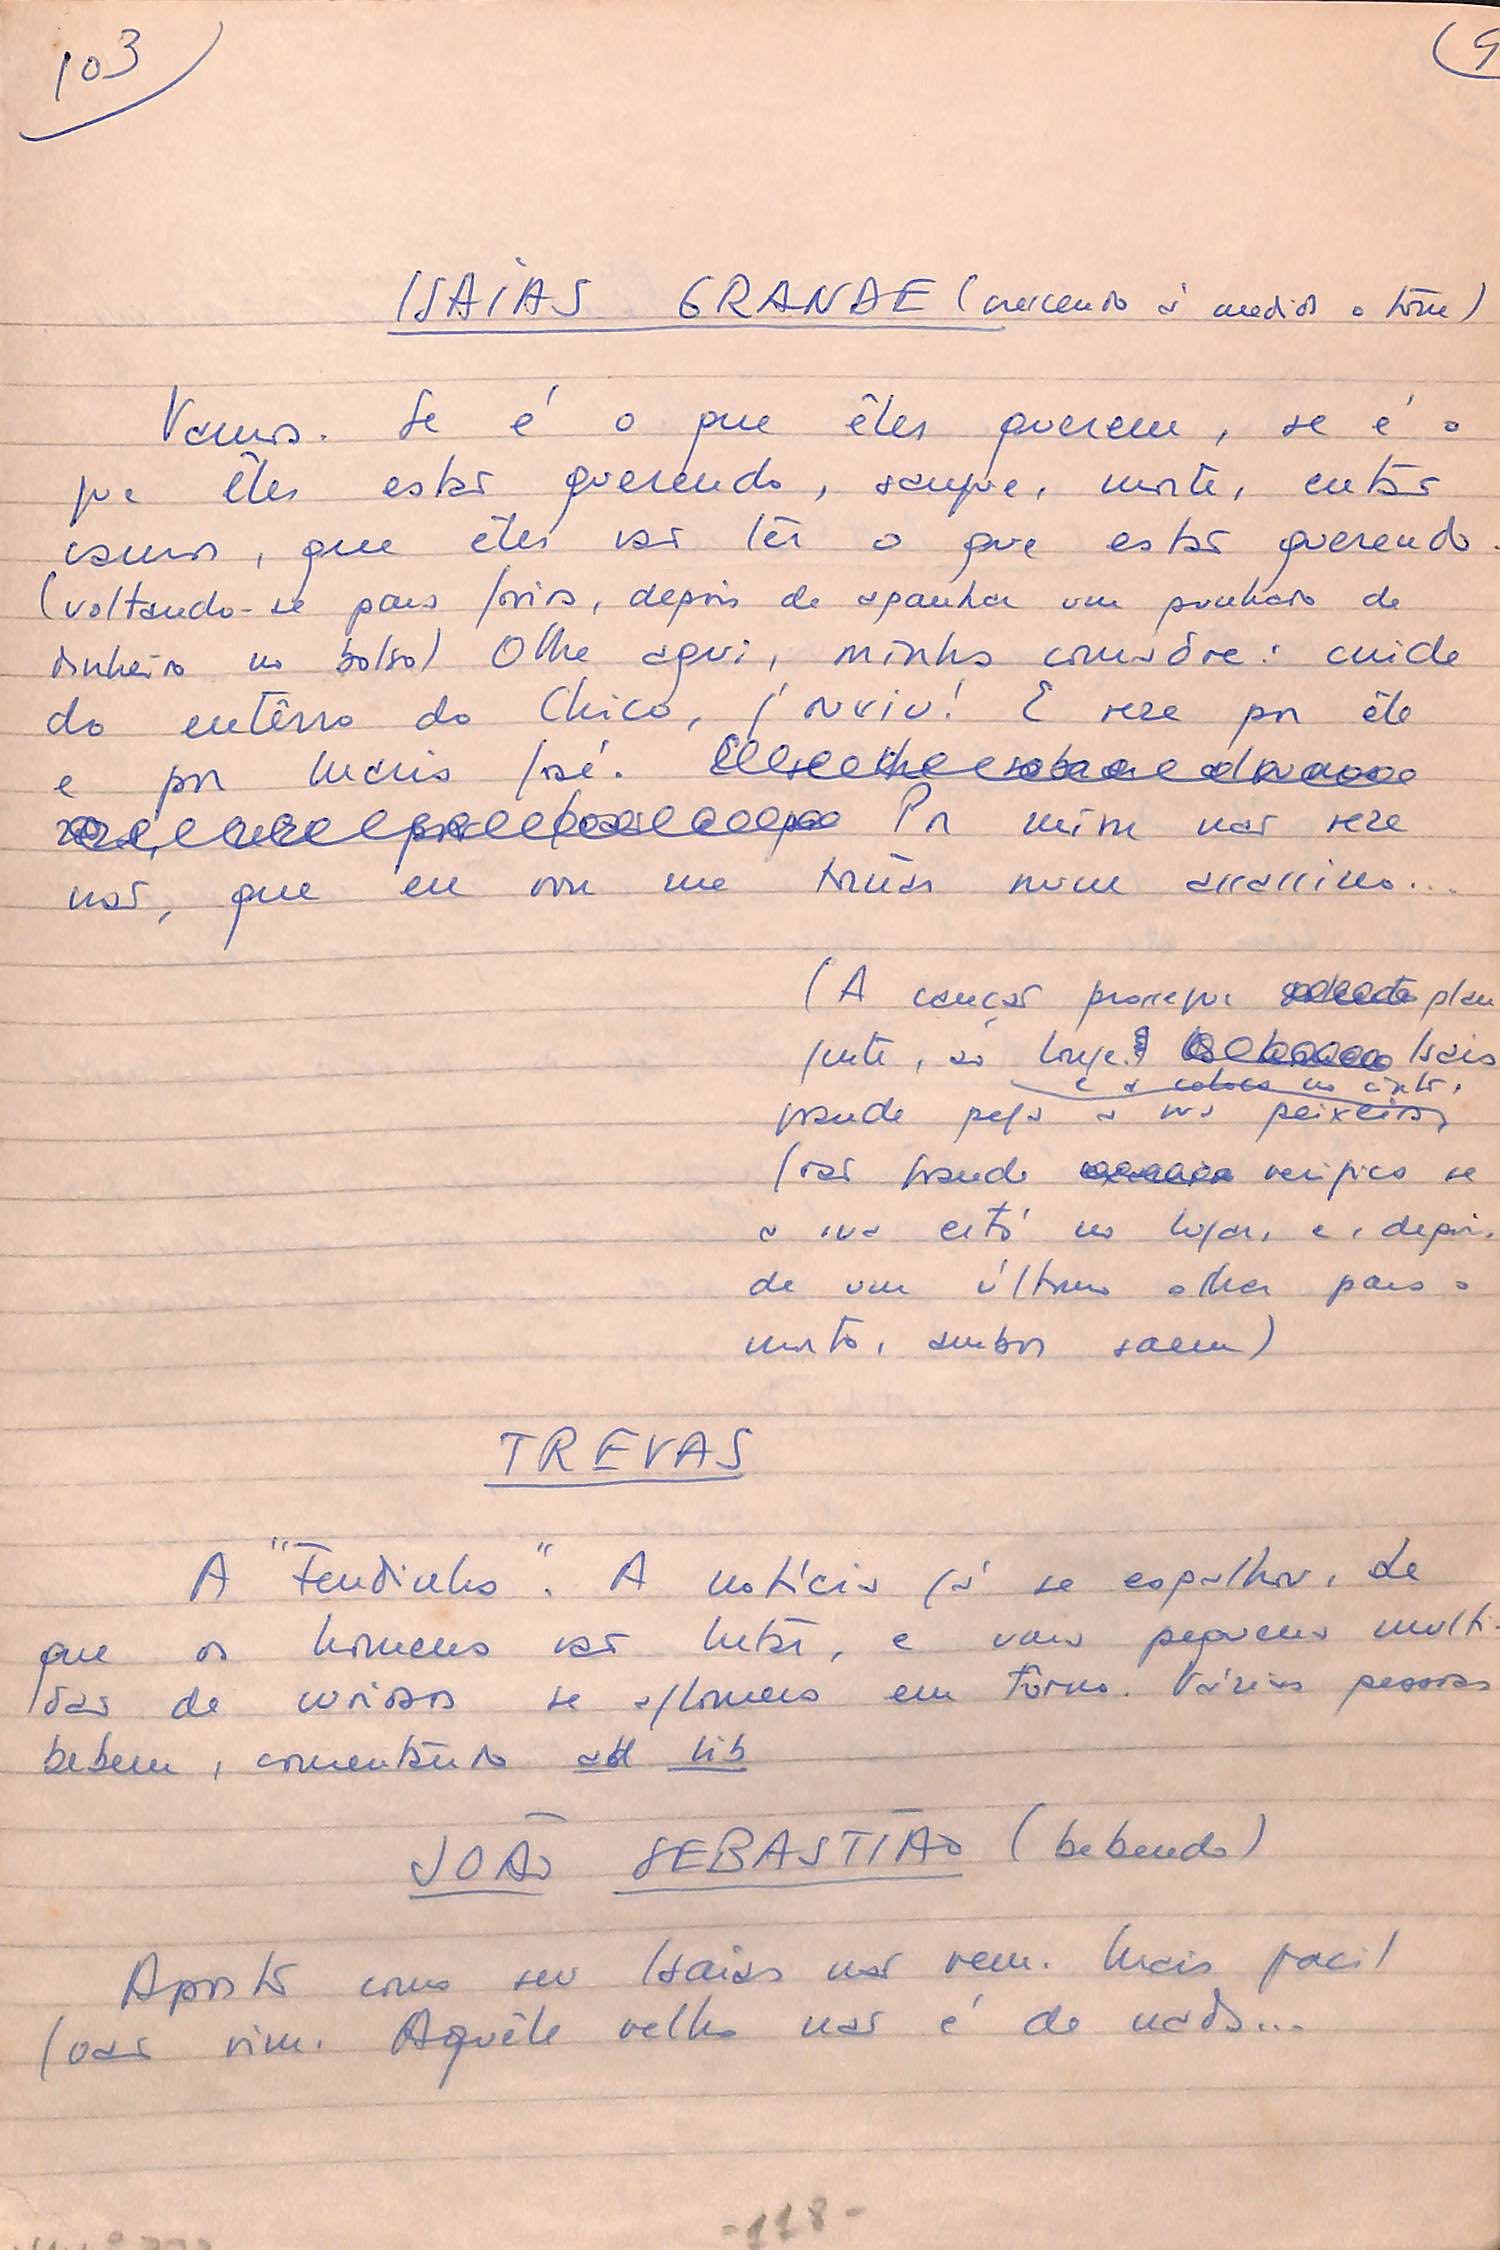 103
(9
ISAIAS GRANDE (crescendo à medida o tom)
Vamos. Se é o que êles querem, se é o
que êles estão querendo, sangue, morte, então
vamos, que êles vão ter o que estão querendo.
(voltando-se para Jovina, depois de apanhar um punhado de
dinheiro no bolso) Olhe aqui, minha comadre: cuide
do entêrro do Chico, ouviu! E reze por êle
e por Maria José.
Por mim não reze
não, que eu vou me tornar num assassino...
(A canção prossegue plan
gente, ao longe. Isaias
e a coloca no cinto.
grande pega a sua peixeira,
João grande verifica se
a sua está no lugar, e, depois
de um último olhar para o
morto, ambos saem)
TREVAS
A "Tendinha". A notícia já se espalhou, de
que os homens vão lutar, e uma pequena multi-
dão de curiosos se aglomera em torno. Várias pessoas
bebem, comentando ad lib
JOÃO SEBASTIÃO (bebendo)
Aposto como seu Isaias não vem. Mais facil
João vim. Aquêle velho não é de nada...
-118-